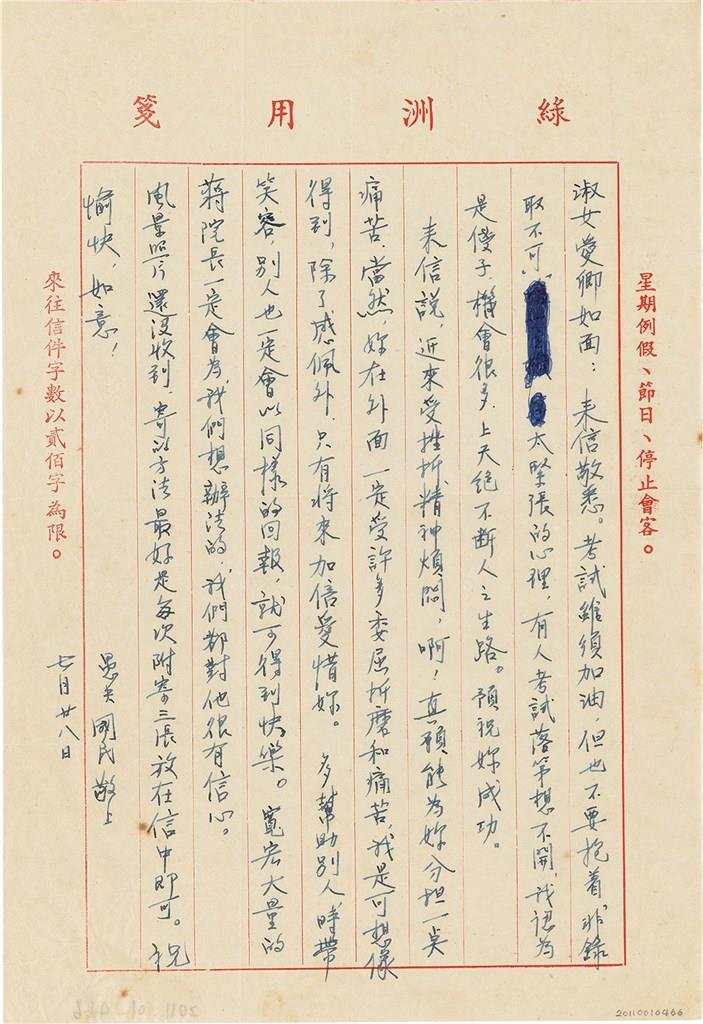 綠洲用箋
星期例假、節日、停止會客。
淑女愛卿如面：來信敬悉。考試雖須加油，但也不要抱着「非錄
取不可」太緊張的心理，有人考試落第想不開，我認為
是傻子，機會很多，上天絕不斷人之生路。預祝妳成功。
來信說，近來受挫折精神煩悶，啊！真願能為妳分担一點
痛苦，當然，妳在外面一定受許多委屈折磨和痛苦，我是可想像
得到，除了感佩外，只有將來加倍愛惜妳。多幫助別人，時帶
笑容，別人也一定會以同樣的回報，就可得到快樂。寬宏大量的
蔣院長一定會為我們想辦法的，我們都對他很有信心。
風景照片還沒收到，寄以方法最好是每次附寄三張放在信中即可。祝
愉快，如意！
愚夫 國民 敬上
七月廿八日
來往信件字數以貳佰字為限。
20110010466